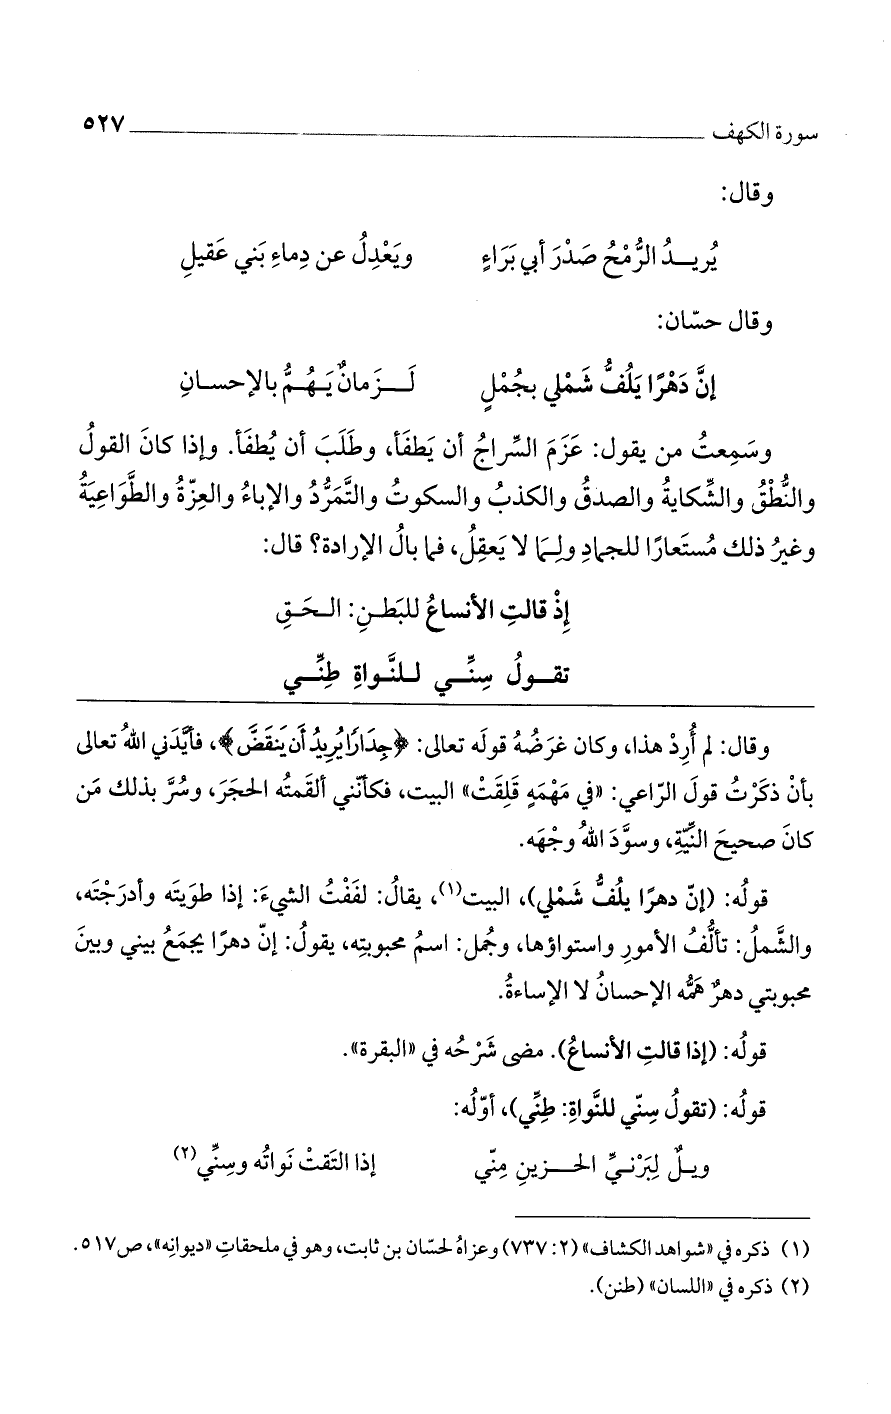 سورة الكهف ٥٢٧
وقال:
يُريــدُ الرُّمْحُ صَدْرَ أبي بَرَاءٍ ويَعْدِلُ عن دِماءِ بَني عَقيلِ
وقال حسّان:
إنَّ دَهْرًا يَلُفُّ شَمْلي بجُمْلٍ لَــزَمانٌ يَـهُـمُّ بالإحسـانِ
وسَمِعتُ من يقول: عَزَمَ السِّراجُ أن يَطفَأ، وطَلَبَ أن يُطفَأ. وإذا كانَ القولُ
والنُّطْقُ والشِّكايةُ والصدقُ والكذبُ والسكوتُ والتَّمَرُّدُ والإباءُ والعِزّةُ والطَّوَاعِيَةُ
وغيرُ ذلك مُستَعارًا للجمادِ ولِـمَا لا يَعقِلُ، فما بالُ الإرادة؟ قال:
إذْ قالتِ الأنساعُ للبَطـنِ: الـحَـقِ
تقــولُ سِنِّــي للـنَّـواةِ طِنِّــي
وقال: لم أُرِدْ هذا، وكان غرَضُهُ قولَه تعالى: ﴿جِدَارًا يُرِيدُ أَن يَنقَضَّ﴾، فأيَّدَني اللهُ تعالى
بأنْ ذكَرْتُ قولَ الرّاعي: «في مَهْمَهٍ قَلِقَتْ» البيت، فكأنّني ألقَمتُه الحجَر، وسُرَّ بذلك مَن
كانَ صحيحَ النِّيّةِ، وسوَّدَ اللهُ وجْهَه.
قولُه: (إنّ دهرًا يلُفُّ شَمْلي)، البيت(١)، يقالُ: لفَفْتُ الشيءَ: إذا طوَيتَه وأدرَجْتَه،
والشَّملُ: تألُّفُ الأمورِ واستواؤها، وجُمل: اسمُ محبوبتِه، يقولُ: إنّ دهرًا يجمَعُ بيني وبينَ
محبوبتي دهرٌ هَمُّه الإحسانُ لا الإساءةُ.
قولُه: (إذا قالتِ الأنساعُ). مضى شَرْحُه في «البقرة».
قولُه: (تقولُ سنّي للنَّواةِ: طِنِّي)، أوّلُه:
ويـلٌ لِبَرْنـيِّ الحــزينِ مِنّي إذا التَقتْ نَواتُه وسِنِّي(٢)
(١) ذكره في «شواهد الكشاف» (٢: ٧٣٧) وعزاهُ لحسّان بن ثابت، وهو في ملحقاتِ «ديوانِه»، ص٥١٧.
(٢) ذكره في «اللسان» (طنن).